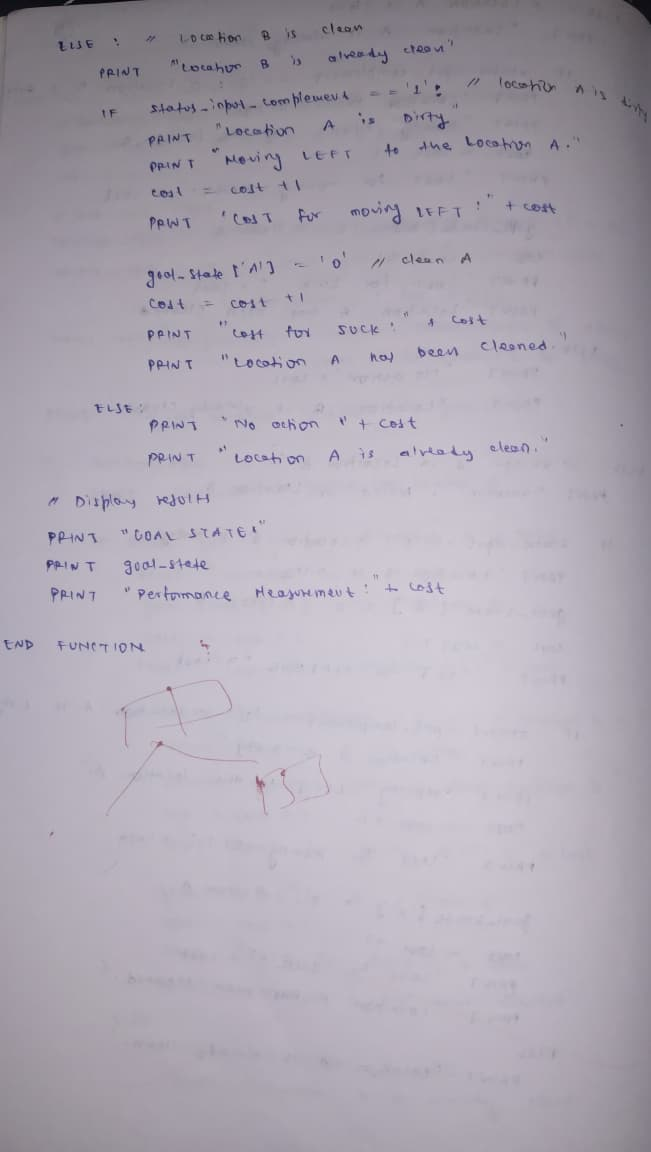 ELSE : // Location B is clean
PRINT "Location B is already clean"
IF status_input_complement == '1': // location A is dirty
PRINT "Location A is Dirty"
PRINT "Moving LEFT to the Location A."
cost = cost +1
PRINT "COST for moving LEFT:" + cost
goal_state ['A'] = '0' // clean A
cost = cost +1
PRINT "Cost for SUCK:" + cost
PRINT "Location A has been cleaned."
ELSE:
PRINT "No action" + cost
PRINT "Location A is already clean."
// Display results
PRINT "GOAL STATE:"
PRINT goal_state
PRINT "Performance Measurement:" + cost
END FUNCTION